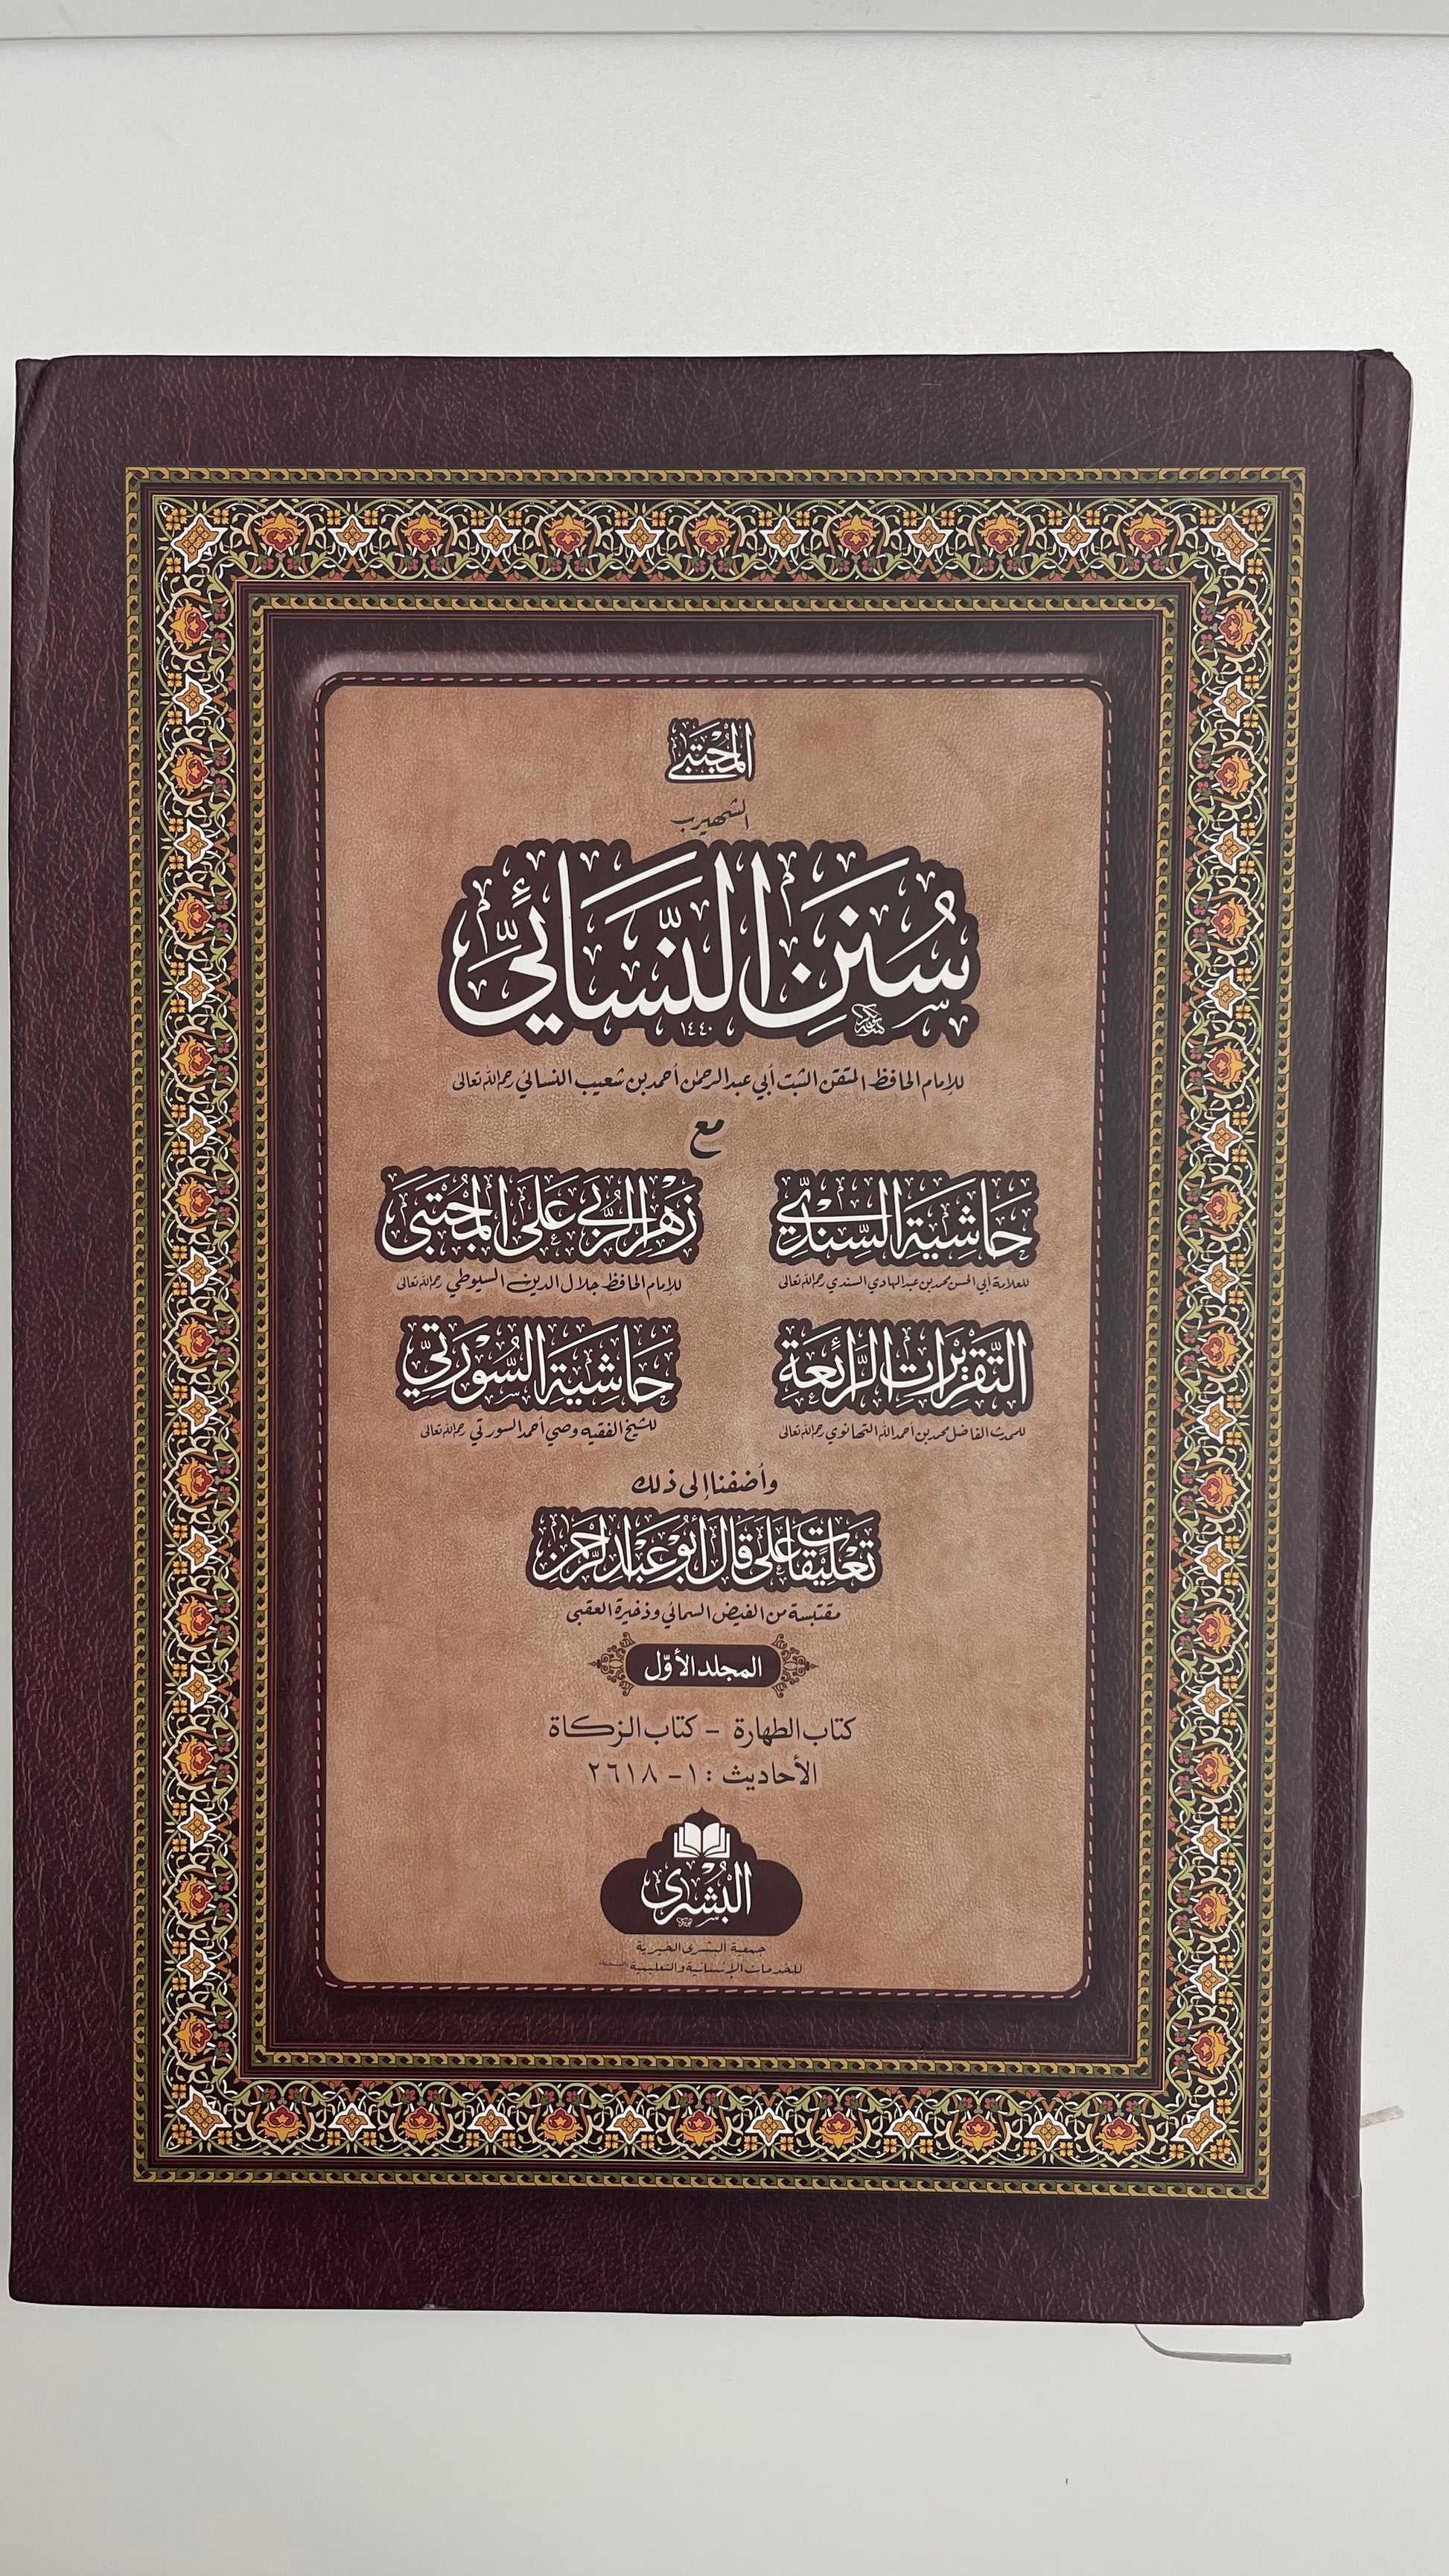 المجتبى
الشهير بـ
سُنَنِ النَّسَائِيِّ
١٤٤٠
للإمام الحافظ المتقن الثبت أبي عبد الرحمن أحمد بن شعيب النسائي رحمه الله تعالى
مع
حَاشِيَة السِّنْدِيّ
للعلامة أبي الحسن محمد بن عبد الهادي السندي رحمه الله تعالى
زَهْر الرُّبى عَلَى المُجْتَبَى
للإمام الحافظ جلال الدين السيوطي رحمه الله تعالى
التَّقْرِيْرَات الرَّائِعَة
للمحدث الفاضل محمد بن أحمد الله التهانوي رحمه الله تعالى
حَاشِيَة السُّوْرَتِيّ
للشيخ الفقيه وصي أحمد السورتي رحمه الله تعالى
وأضفنا إلى ذلك
تَعْلِيْقَات عَلَى قَالَ أَبُوْ عَبْد الرَّحْمن
مقتبسة من الفيض السمائي وذخيرة العقبى
المجلد الأوّل
كتاب الطهارة – كتاب الزكاة
الأحاديث : ١ – ٢٦١٨
البُشْرى
جمعية البشرى الخيرية
للخدمات الإنسانية والتعليمية